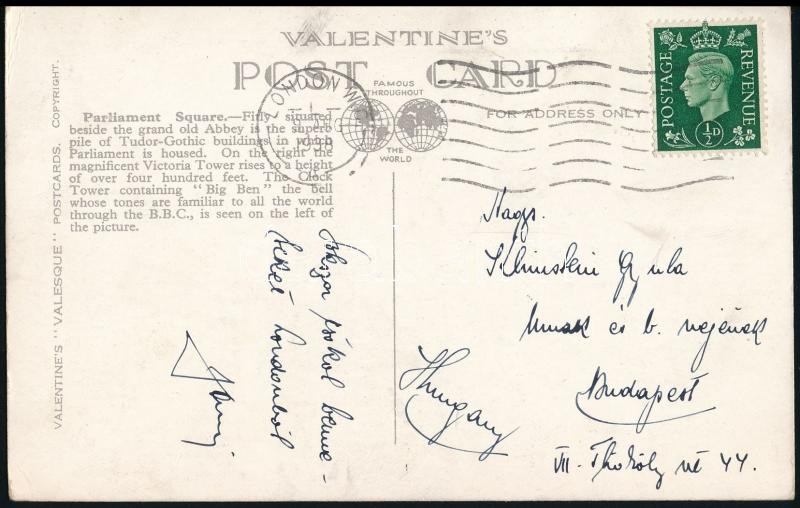 VALENTINE'S
POST CARD
FAMOUS
THROUGHOUT
THE
WORLD
LONDON W
FOR ADDRESS ONLY
POSTAGE
REVENUE
½D
VALENTINE'S "VALESQUE" POSTCARDS. COPYRIGHT.
Parliament Square.—Fitly situated
beside the grand old Abbey is the superb
pile of Tudor-Gothic buildings in which
Parliament is housed. On the right the
magnificent Victoria Tower rises to a height
of over four hundred feet. The Clock
Tower containing "Big Ben" the bell
whose tones are familiar to all the world
through the B.B.C., is seen on the left of
the picture.
Sokszor csókol benne-
teket Londonból
Nagys.
Gyula
és b. nejének
Budapest
VII. Thököly út 44.
Hungary